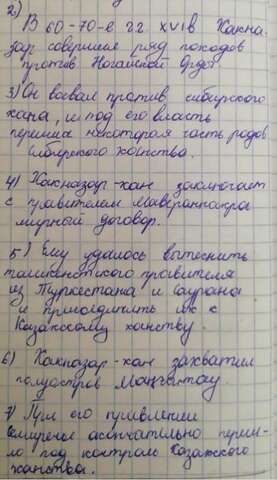 2) В 60-70-е гг. XVIв Хакна-
зар совершил ряд походов
против Ногайской Орды.
3) Он воевал против сибирского
хана, и под его власть
перешла некоторая часть родов
Сибирского ханства.
4) Хакназар-хан заключает
с правителем Мавераннахра
мирный договор.
5) Ему удалось вытеснить
ташкентского правителя
из Туркестана и Саурана
и присоединить их к
Казахскому ханству.
6) Хакназар-хан захватил
полуостров Маңғыстау.
7) При его правлении
Семиречье окончательно переш-
ло под контроль Казахского
ханства.